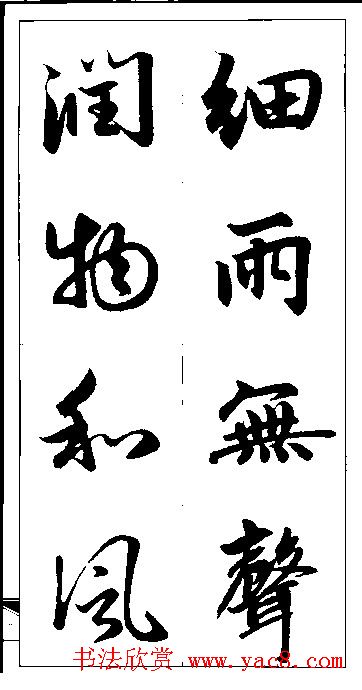 细雨無聲
润物和风
书法欣赏 www.yac8.com